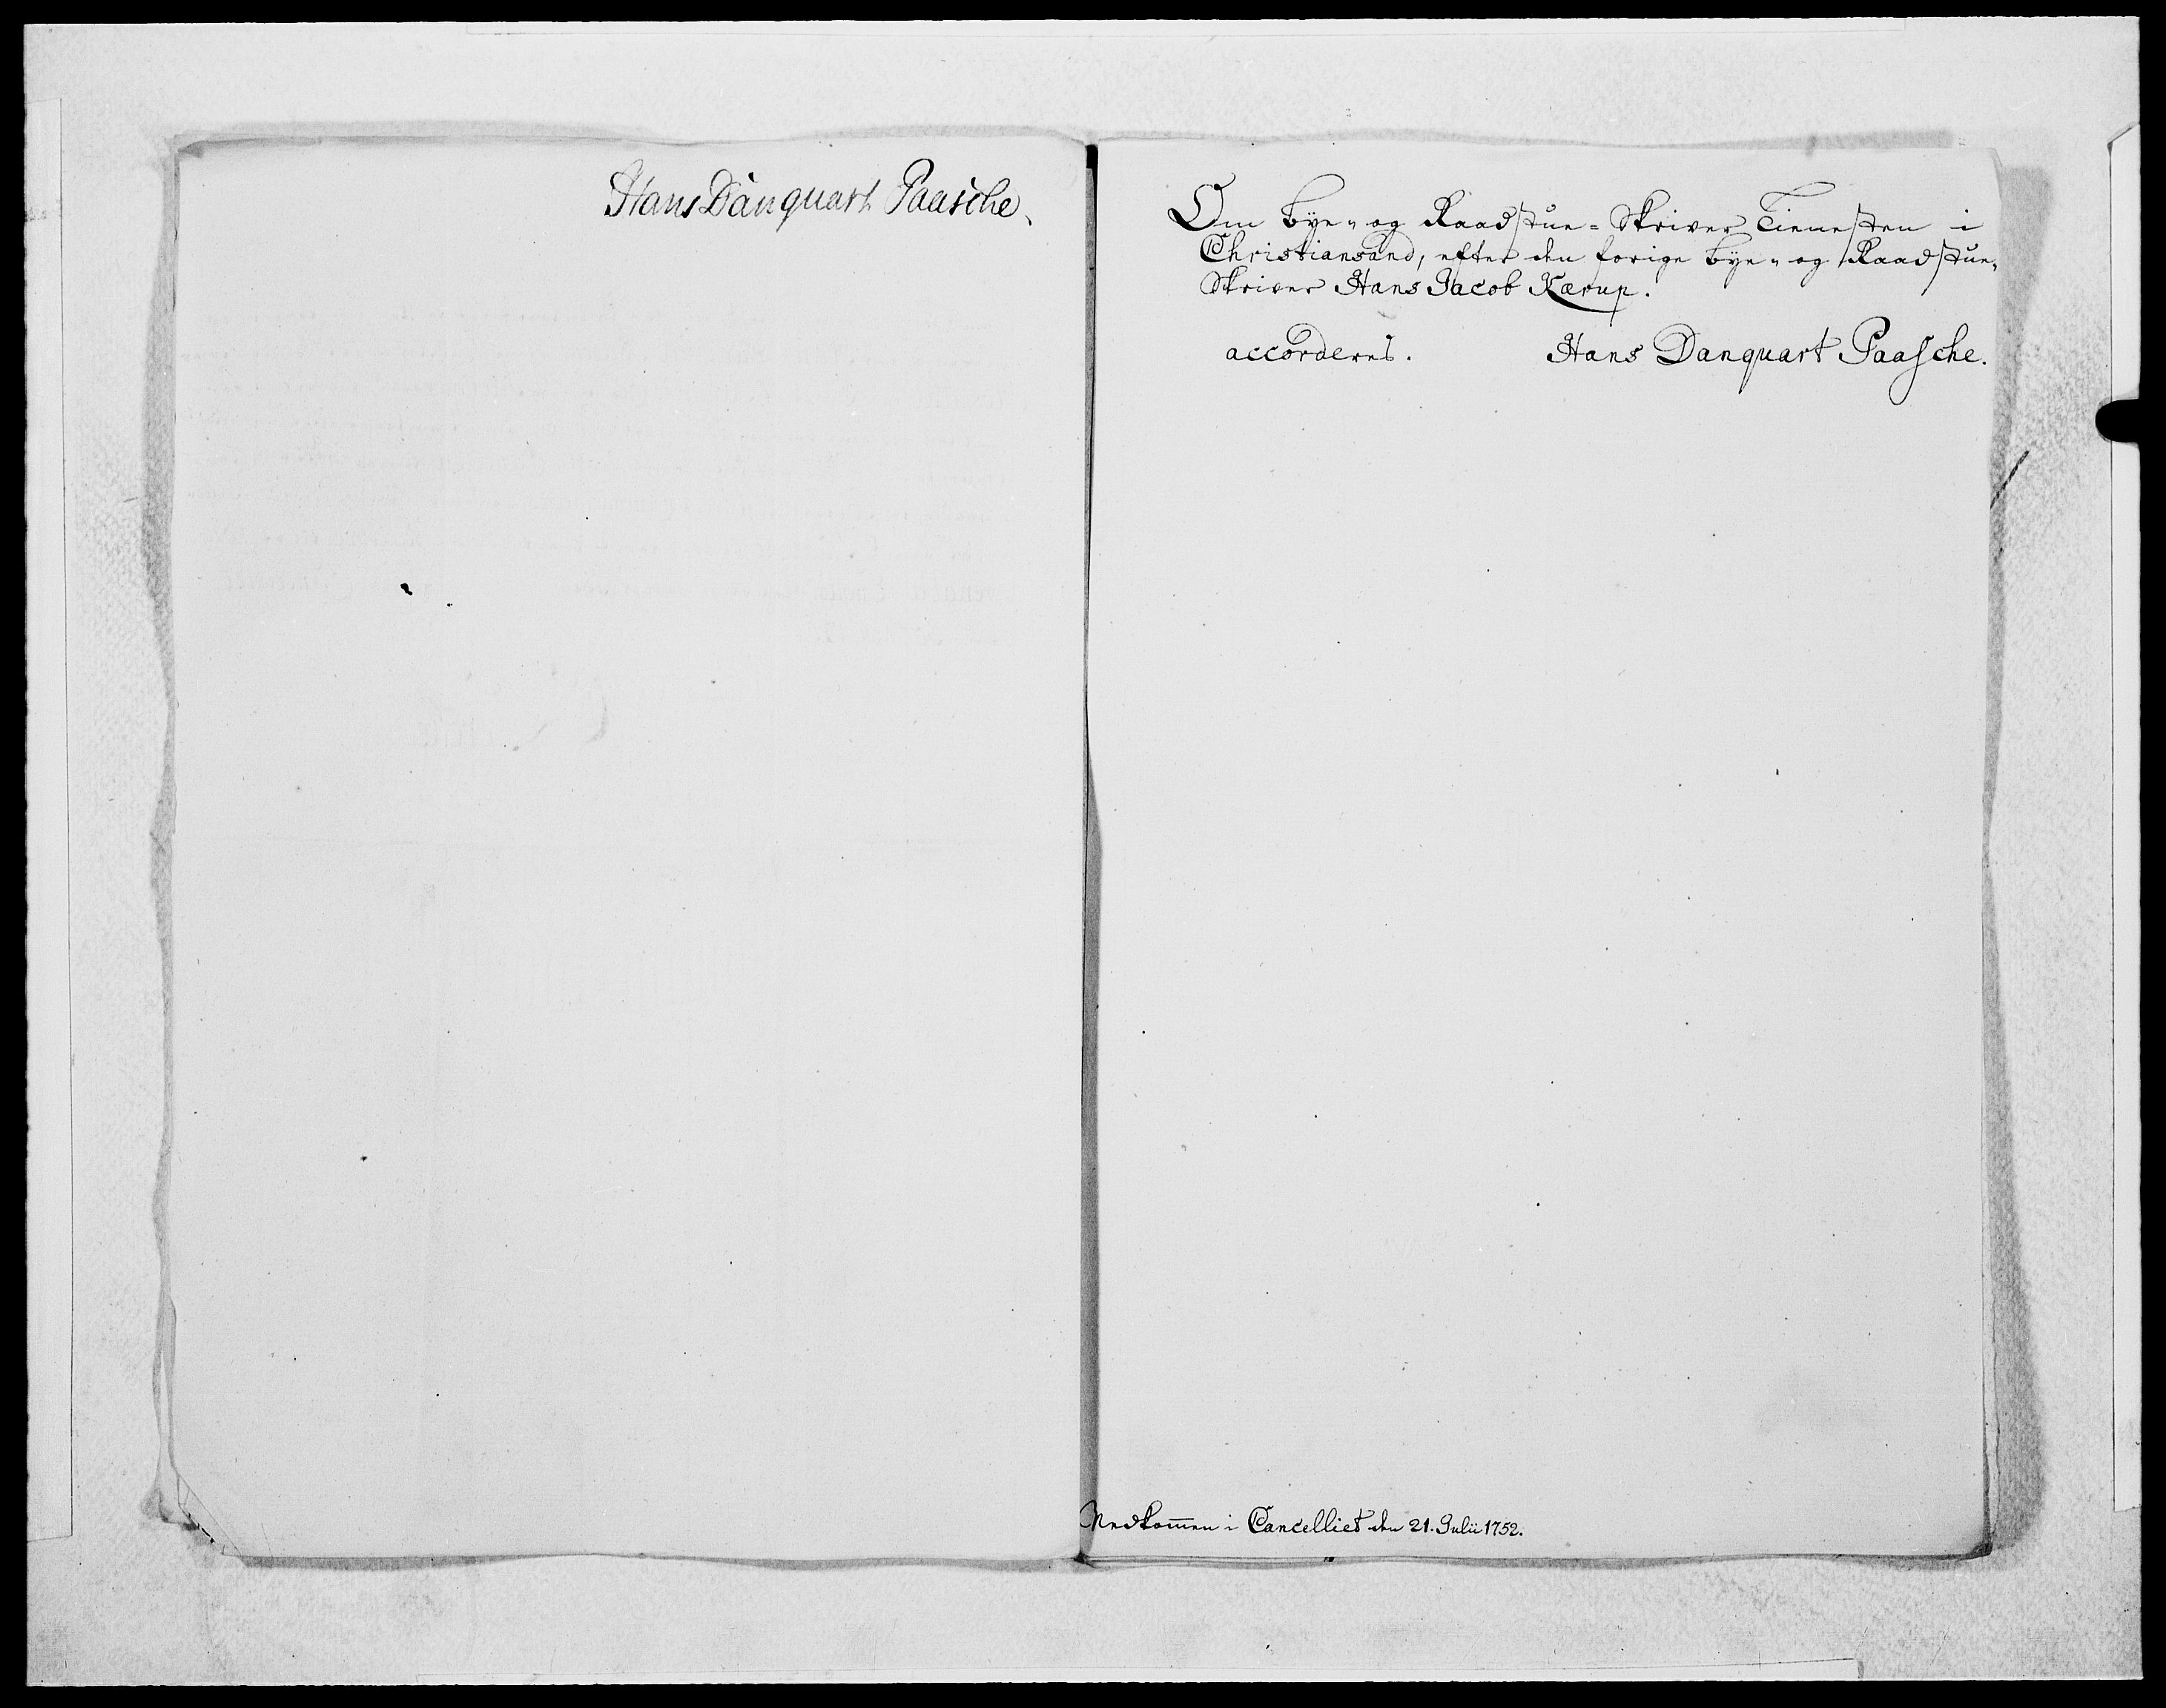 Hans Danquart Paasche.
Om bye- og Raadstue-Skriver Tienesten i
Christiansand, efter den forige bye- og Raadstue-
Skriver Hans Jacob Kærup.
accorderes. Hans Danquart Paasche.
Nedkom̄en i Cancelliet den 21. Julii 1752.